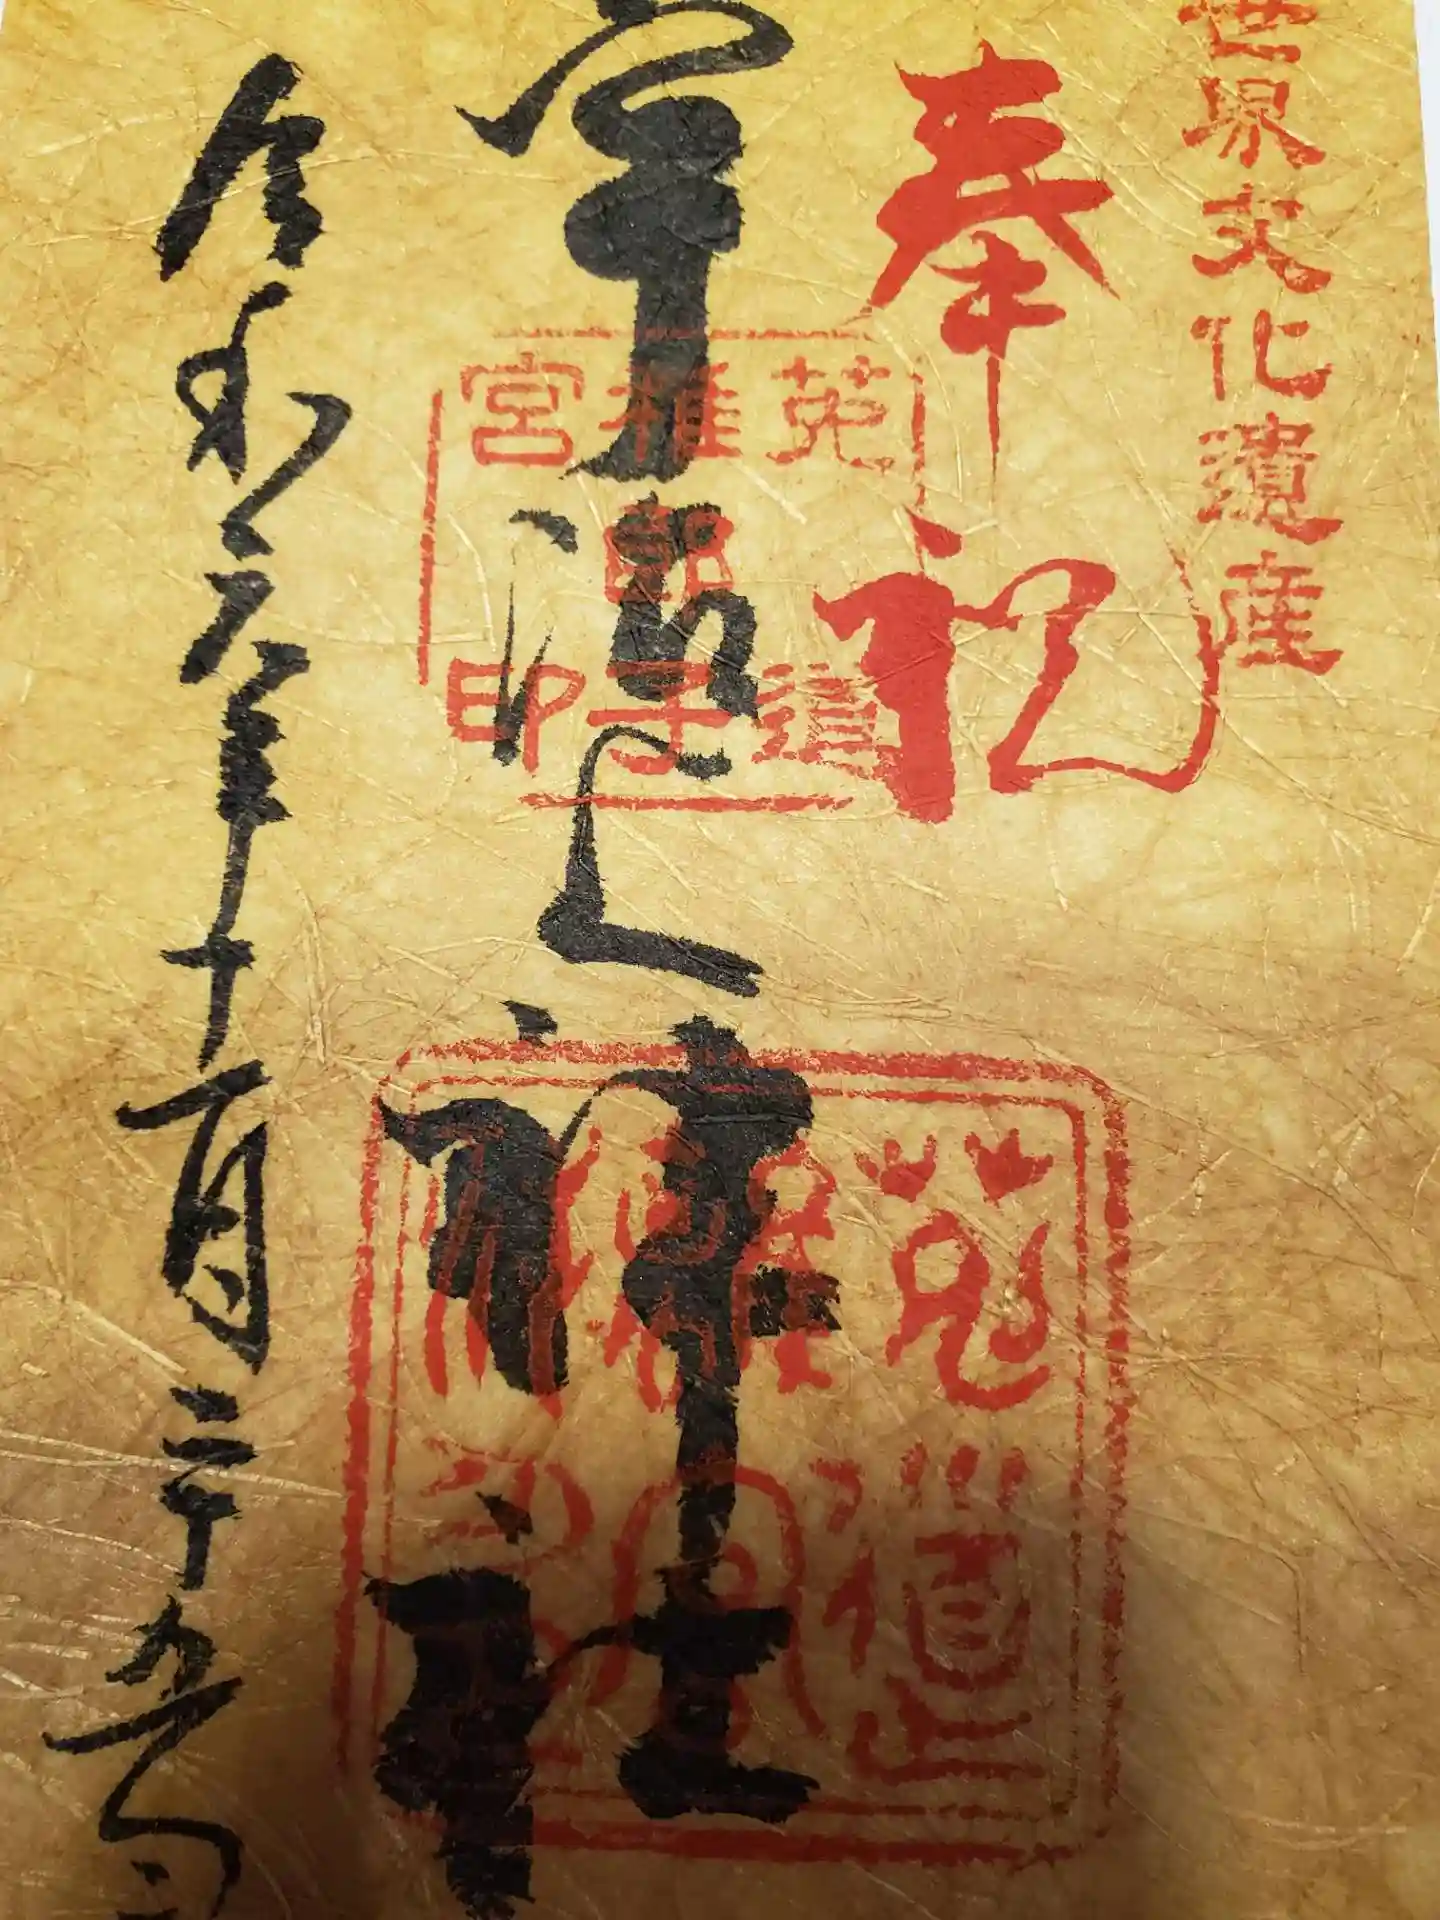 世界文化遺産
奉祀
宇治上神社
菟道
稚郎子
宮印
令和六年十月二十五日